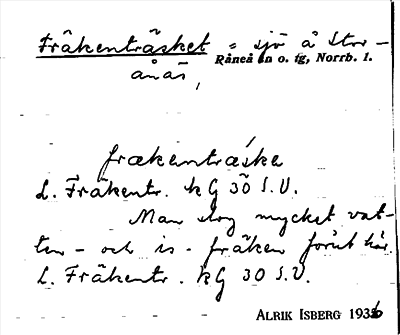 Fräkenträsket = sjö å Stor-
Råneå sn o. tg, Norrb. l.
ånäs,
frækentræske
L. Fräkentr. kG 30 S.V.
Man slog mycket vat-
ten- och is-fräken förut här.
L. Fräkentr. kG 30 S.V.
ALRIK ISBERG 1936